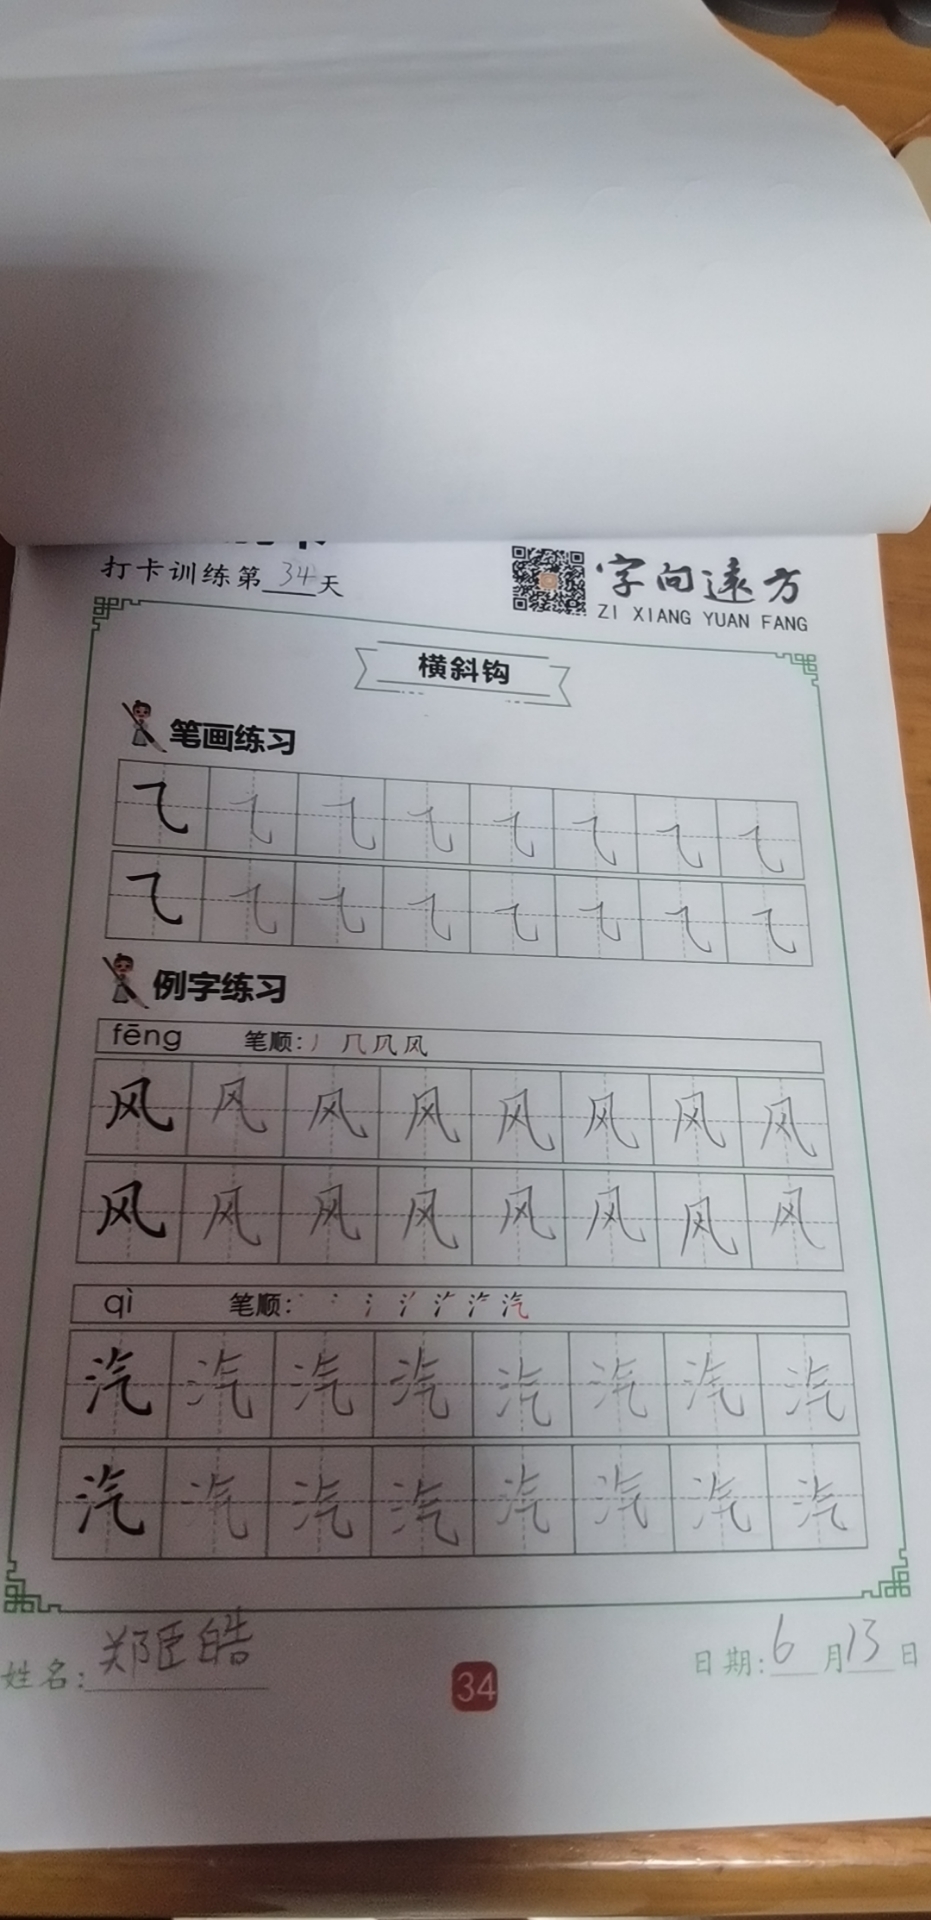 打卡训练第34天
字向远方
ZI XIANG YUAN FANG
横斜钩
笔画练习
乁 乁 乁 乁 乁 乁 乁 乁
乁 乁 乁 乁 乁 乁 乁 乁
例字练习
fēng 笔顺: 丿 几 凤 风
风 风 风 风 风 风 风 风
风 风 风 风 风 风 风 风
qì 笔顺: 汽
汽 汽 汽 汽 汽 汽 汽 汽
汽 汽 汽 汽 汽 汽 汽 汽
姓名: 郑臣皓 34 日期: 6月13日